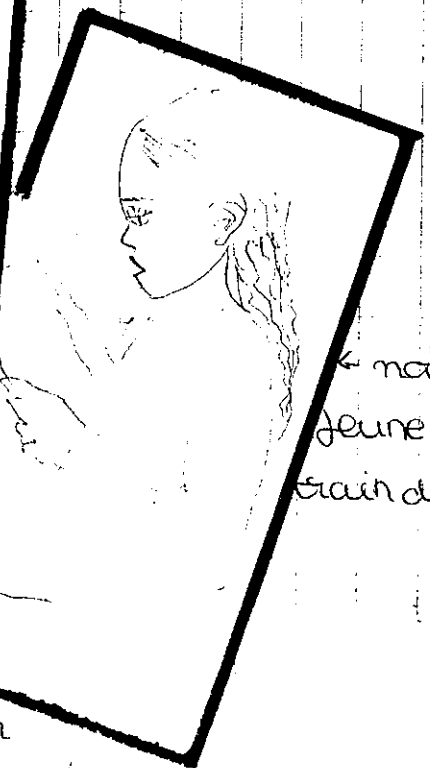 ← na
Jeune
train d